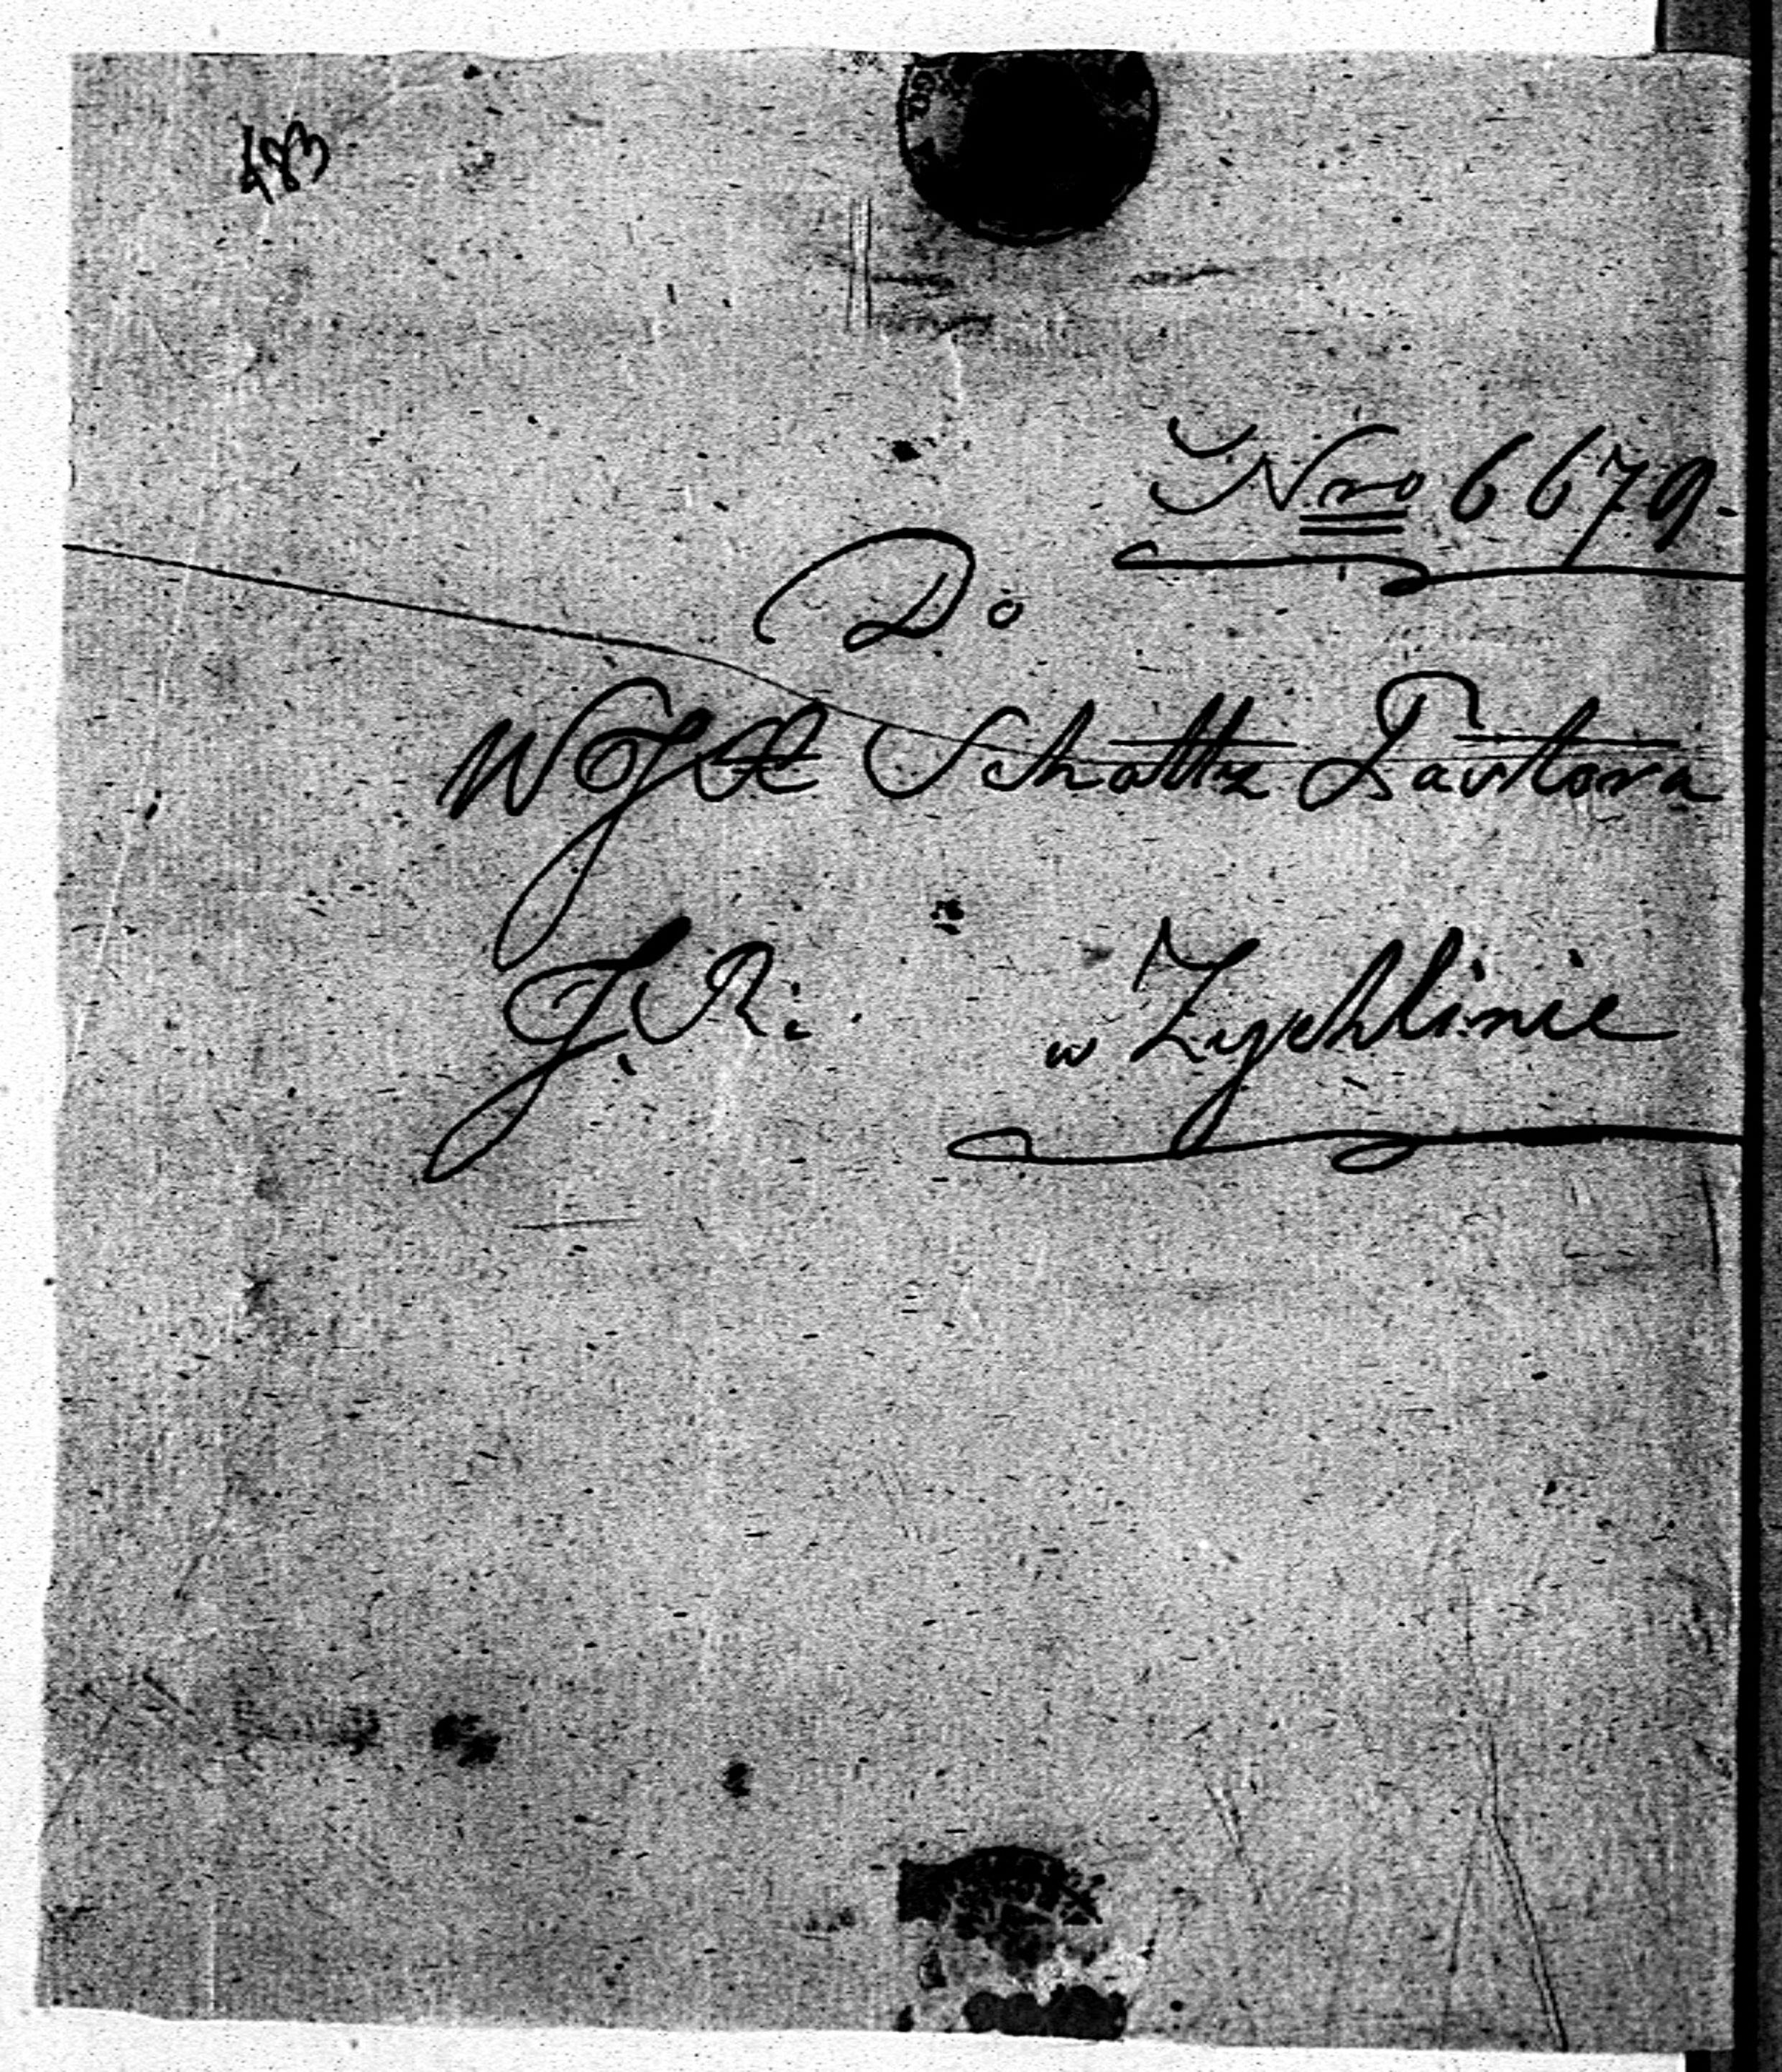 483
Nro 6679.
Do
WJX Schaltz Pastora
J. R: w Zychlinie